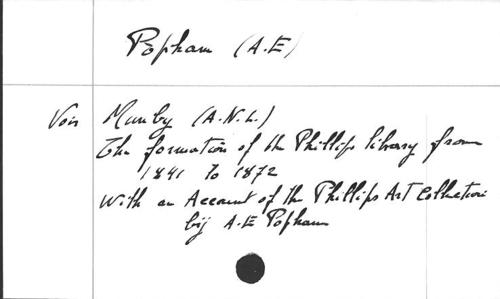 Popham (A.E)
Voir Munby (A.N.L.)
The formation of the Phillips library from
1841 to 1872
With an Account of the Phillips Art Collection
bij A.E Popham